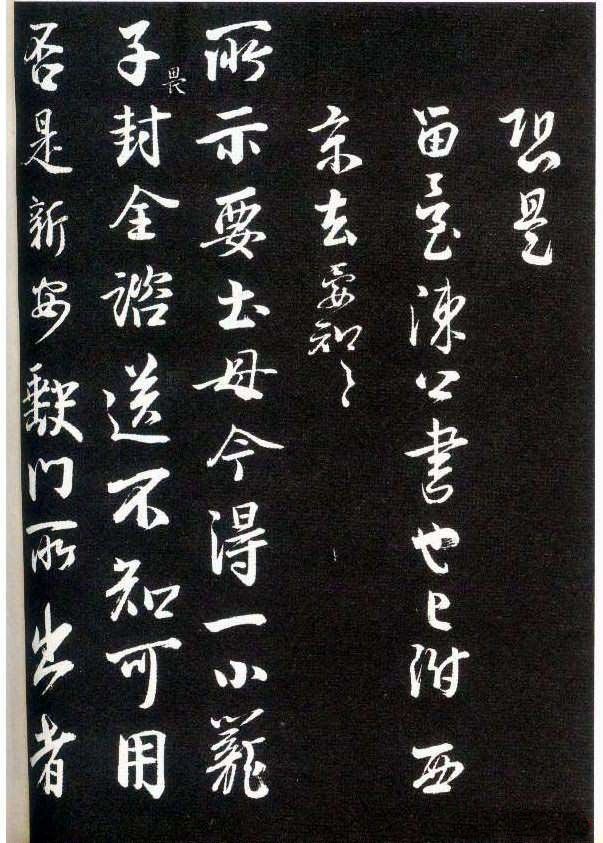 恐是
留臺陳公書也已附西
京去要知〻
所示要土母今得一小籠
子封全諮送不知可用
畏
否是新安門所出者